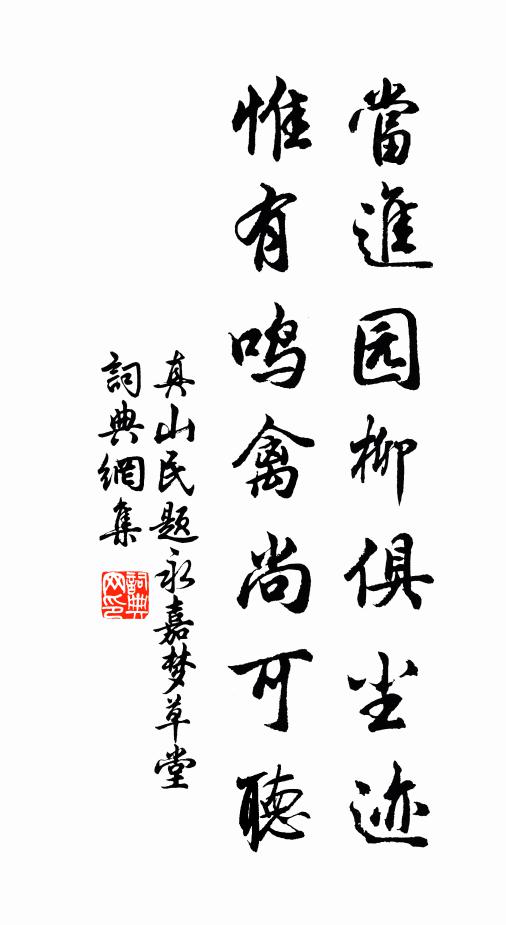 當進园柳俱尘迹
惟有鸣禽尚可聽
真山民题永嘉梦草堂
詞典網集
詞典网印